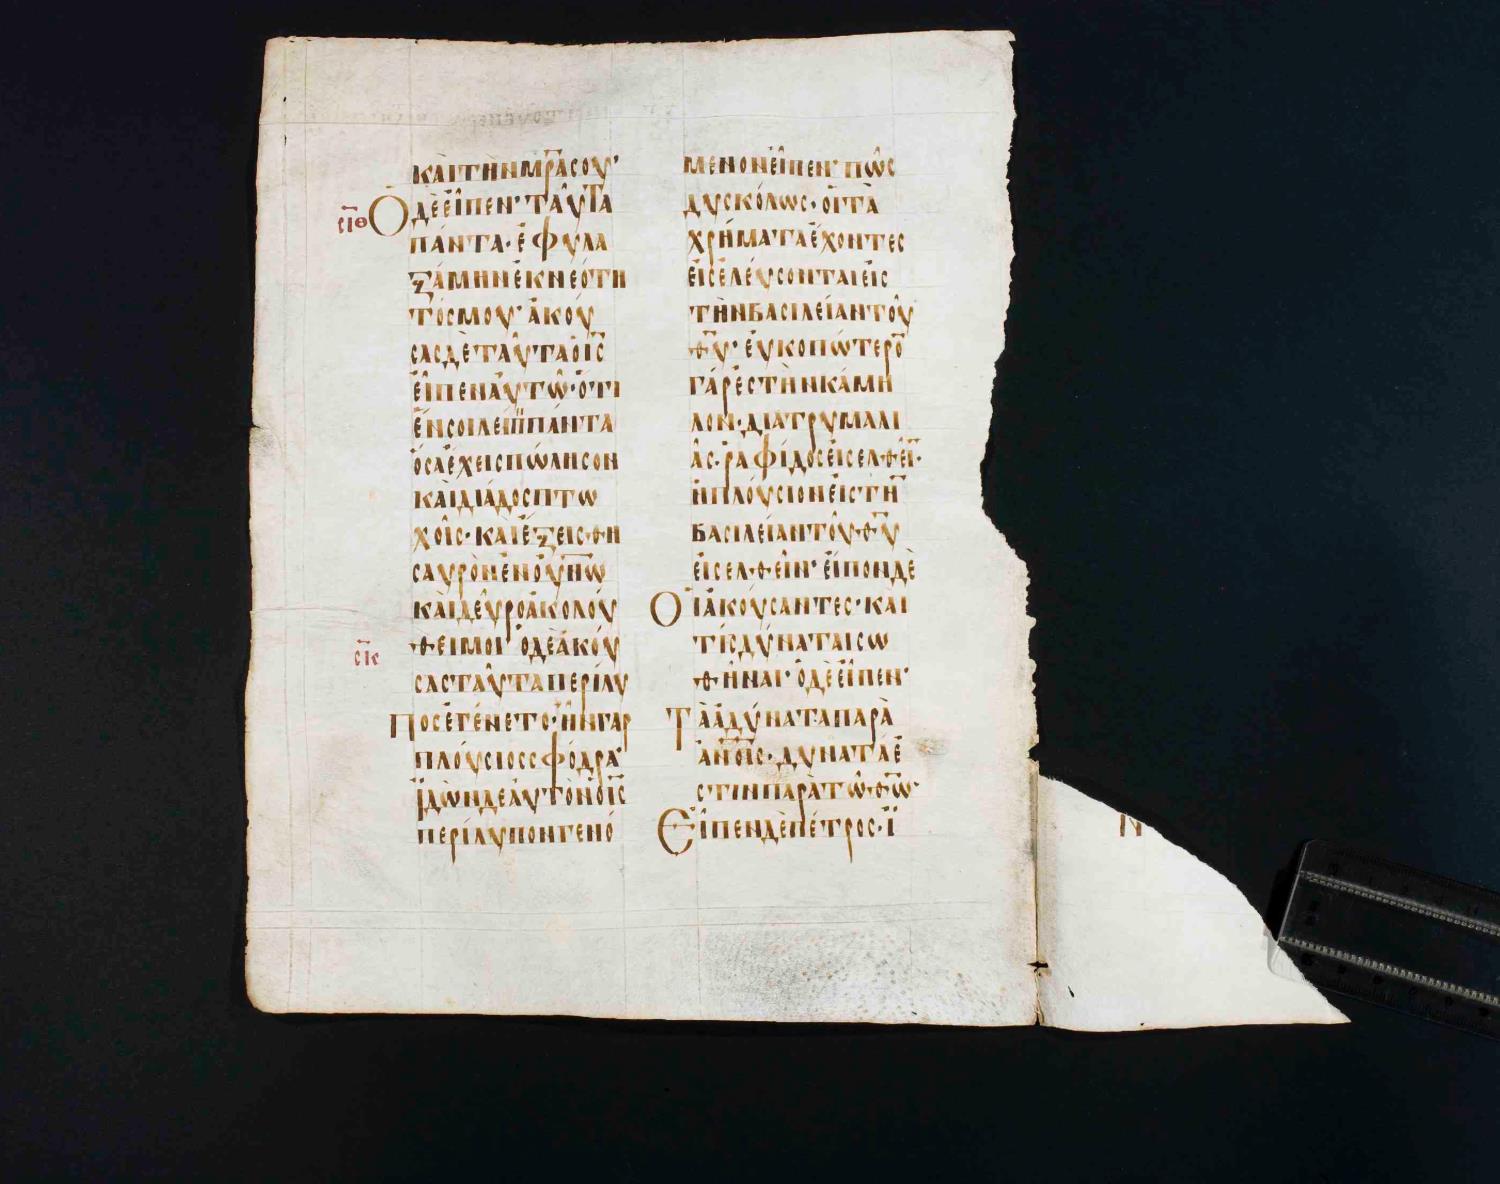 ΚΑῚΤῊΝΜΡ̅ΑΣΟΥ·
σιθ ΟΔῈΕἾΠΕΝ·ΤΑῦΤΑ
ΠΆΝΤΑ·ἘΦΥΛΑ
ΞΆΜΗΝἘΚΝΕΌΤΗ
ΤΌΣΜΟΥ· ἈΚΟΎ
ΣΑΣΔῈΤΑῦΤΑὉΙΣ̅
ΕἾΠΕΝΑὐΤΩ͂·ὍΤΙ
ἝΝΣΟΙΛΕΊΠΕΙΠΆΝΤΑ
ὍΣΑἜΧΕΙΣΠΏΛΗΣΟΝ
ΚΑῚΔΙΆΔΟΣΠΤΩ
ΧΟΙ͂Σ·ΚΑῚἝΞΕΙΣΘΗ
ΣΑΥΡῸΝἘΝΟΥ̅Ν̅Ω̅
ΚΑῚΔΕῦΡΟἈΚΟΛΟΎ
ΘΕΙΜΟΙ· ὉΔῈἈΚΟΎ
σις
ΣΑΣΤΑῦΤΑΠΕΡΊΛΥ
ΠΟΣἘΓΈΝΕΤΟ·ἮΝΓΑΡ
ΠΛΟΎΣΙΟΣΣΦΌΔΡΑ·
ἸΔῺΝΔῈΑὐΤῸΝὉΙΣ̅
ΠΕΡΊΛΥΠΟΝΓΕΝΌ
ΜΕΝΟΝΕἾΠΕΝ· ΠΩ͂Σ
ΔΥΣΚΌΛΩΣ·ΟἹΤᾺ
ΧΡΉΜΑΤΑἜΧΟΝΤΕΣ
ΕἸΣΕΛΕΎΣΟΝΤΑΙΕἸΣ
ΤῊΝΒΑΣΙΛΕΊΑΝΤΟῦ
Θ̅Υ̅· ΕὐΚΟΠΏΤΕΡΟ̅
ΓΆΡἘΣΤῚΝΚΆΜΗ
ΛΟΝ·ΔΙΑΤΡΥΜΑΛΙ
Α͂Σ·ῬΑΦΊΔΟΣΕἸΣΕΛΘΕΙ̅͂·
ἪΠΛΟΎΣΙΟΝΕἸΣΤῊ̅
ΒΑΣΙΛΕΊΑΝΤΟῦΘ̅Υ̅
ΕἸΣΕΛΘΕΙ͂Ν· ΕἾΠΟΝΔῈ
ΟἹἈΚΟΎΣΑΝΤΕΣ·ΚΑΙ
ΤΊΣΔΎΝΑΤΑΙΣΩ
ΘΗ͂ΝΑΙ· ὉΔῈΕἾΠΕΝ·
ΤᾺἈΔΎΝΑΤΑΠΑΡᾺ
ἈΝ̅ΟΙΣ·ΔΥΝΑΤΆἘ
ΣΤΙΝΠΑΡᾺΤΩ͂Θ̅Ω̅·
ΕἾΠΕΝΔῈΠΈΤΡΟΣ·Ἰ
Ν